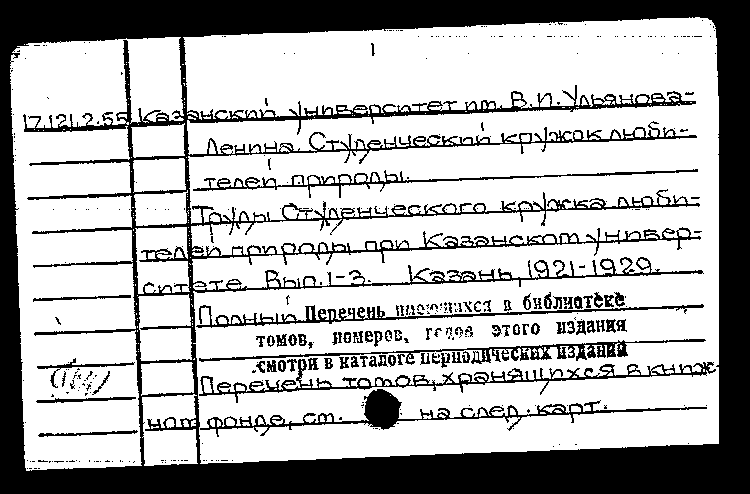 1
17.121.2.55 Казанский университет им. В.И. Ульянова-
Ленина. Студенческий кружок люби-
телей природы.
Труды Студенческого кружка люби-
телей природы при Казанском универ-
ситете. Вып. 1-3. Казань, 1921-1929.
Полный Перечень имеющихся в библиотеке
томов, номеров, годов этого издания
смотри в каталоге периодических изданий
Перечень томов, хранящихся в книж-
ном фонде, см. на след. карт.